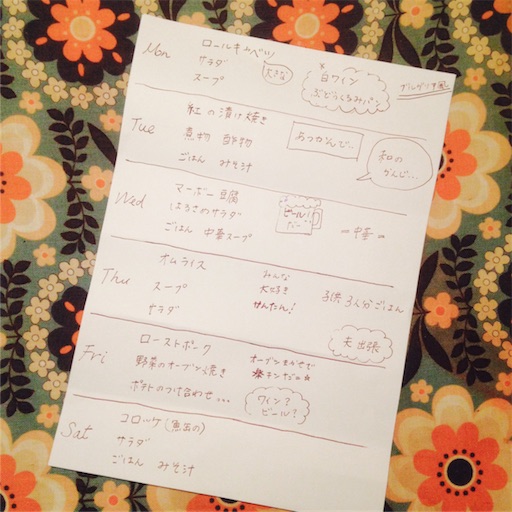 Mon
ロールキャベツ
大きな
サラダ
スープ
白ワイン
ぶどうくるみパン
ブルゲリア風
Tue
紅の漬け焼き
煮物 酢物
ごはん みそ汁
あつかんで..
和の
かんじ...
Wed
マーボー豆腐
はるさめサラダ
ごはん 中華スープ
ビール!
=中華=
Thu
オムライス
スープ
サラダ
みんな
大好き
かんたん!
子供3人分ごはん
Fri
ローストポーク
野菜のオーブン焼き
ポテトのつけ合わせ...
オーブンまかせで
夫出張
ワイン?
ビール?
Sat
コロッケ(魚玉の)
サラダ
ごはん みそ汁